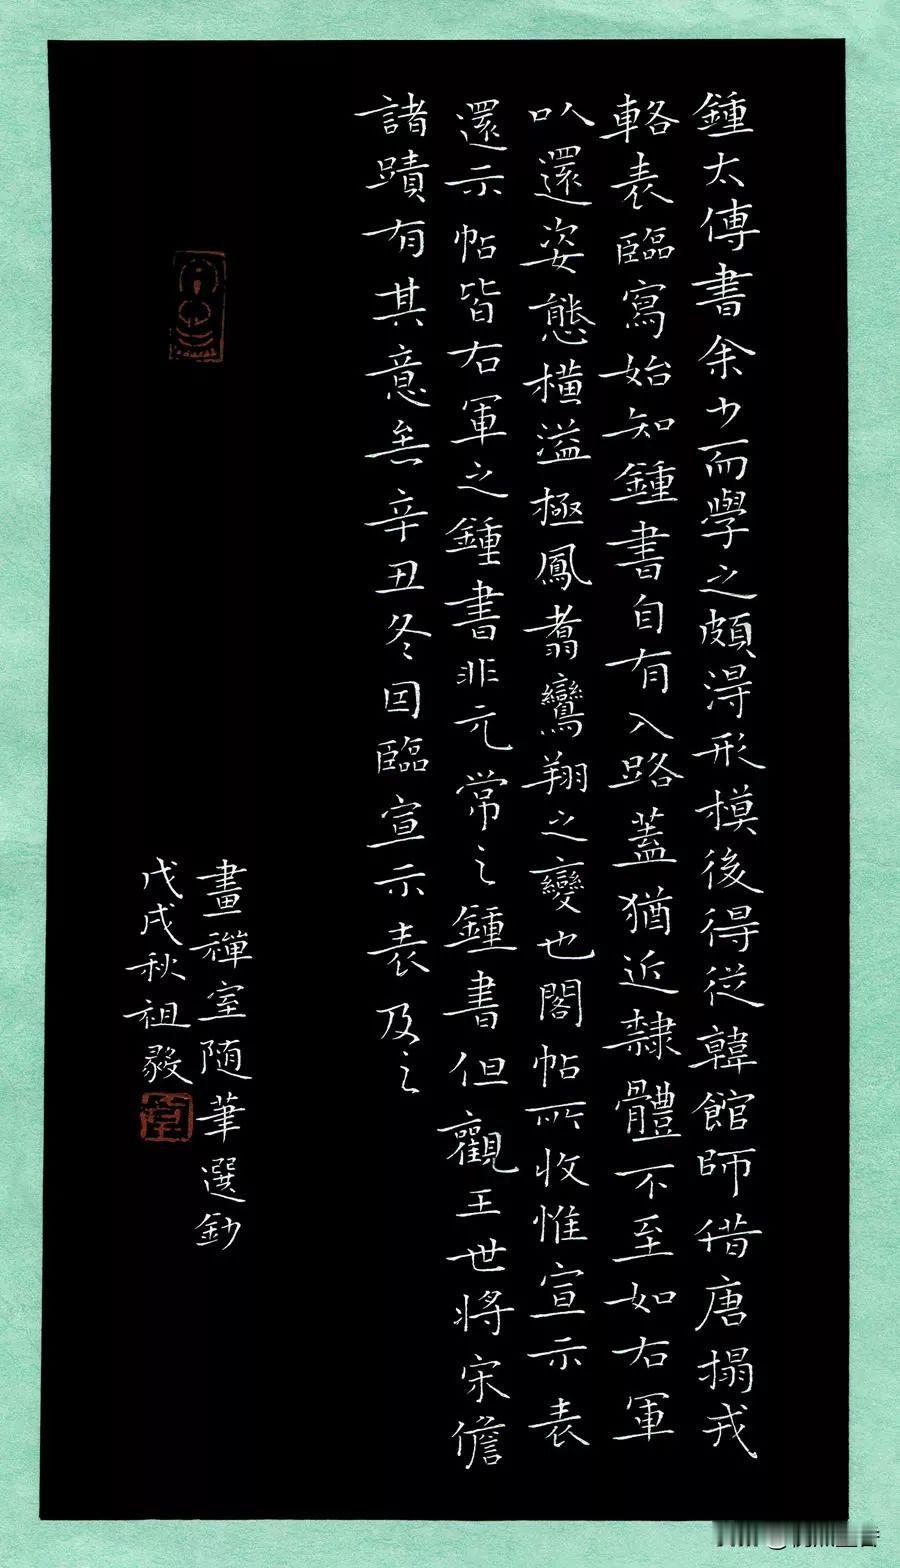 鍾太傅書余少而學之頗淂形模後得從韓館師借唐搨戎
輅表臨寫始知鍾書自有入路蓋猶近隸體不至如右軍
以還姿態橫溢極鳳翥鸞翔之變也閣帖所收惟宣示表
還示帖皆右軍之鍾書非元常之鍾書但觀王世將宋儋
諸蹟有其意矣辛丑冬因臨宣示表及之
畫禪室随筆選鈔
戊戌秋祖毅